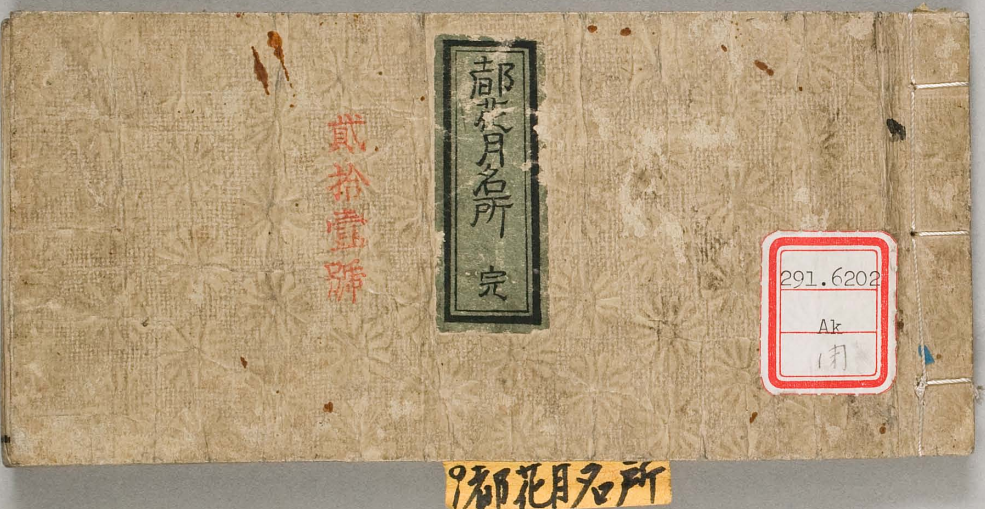 都花月名所 完
貳拾壹號
291.6202
Ak
9都花月名所